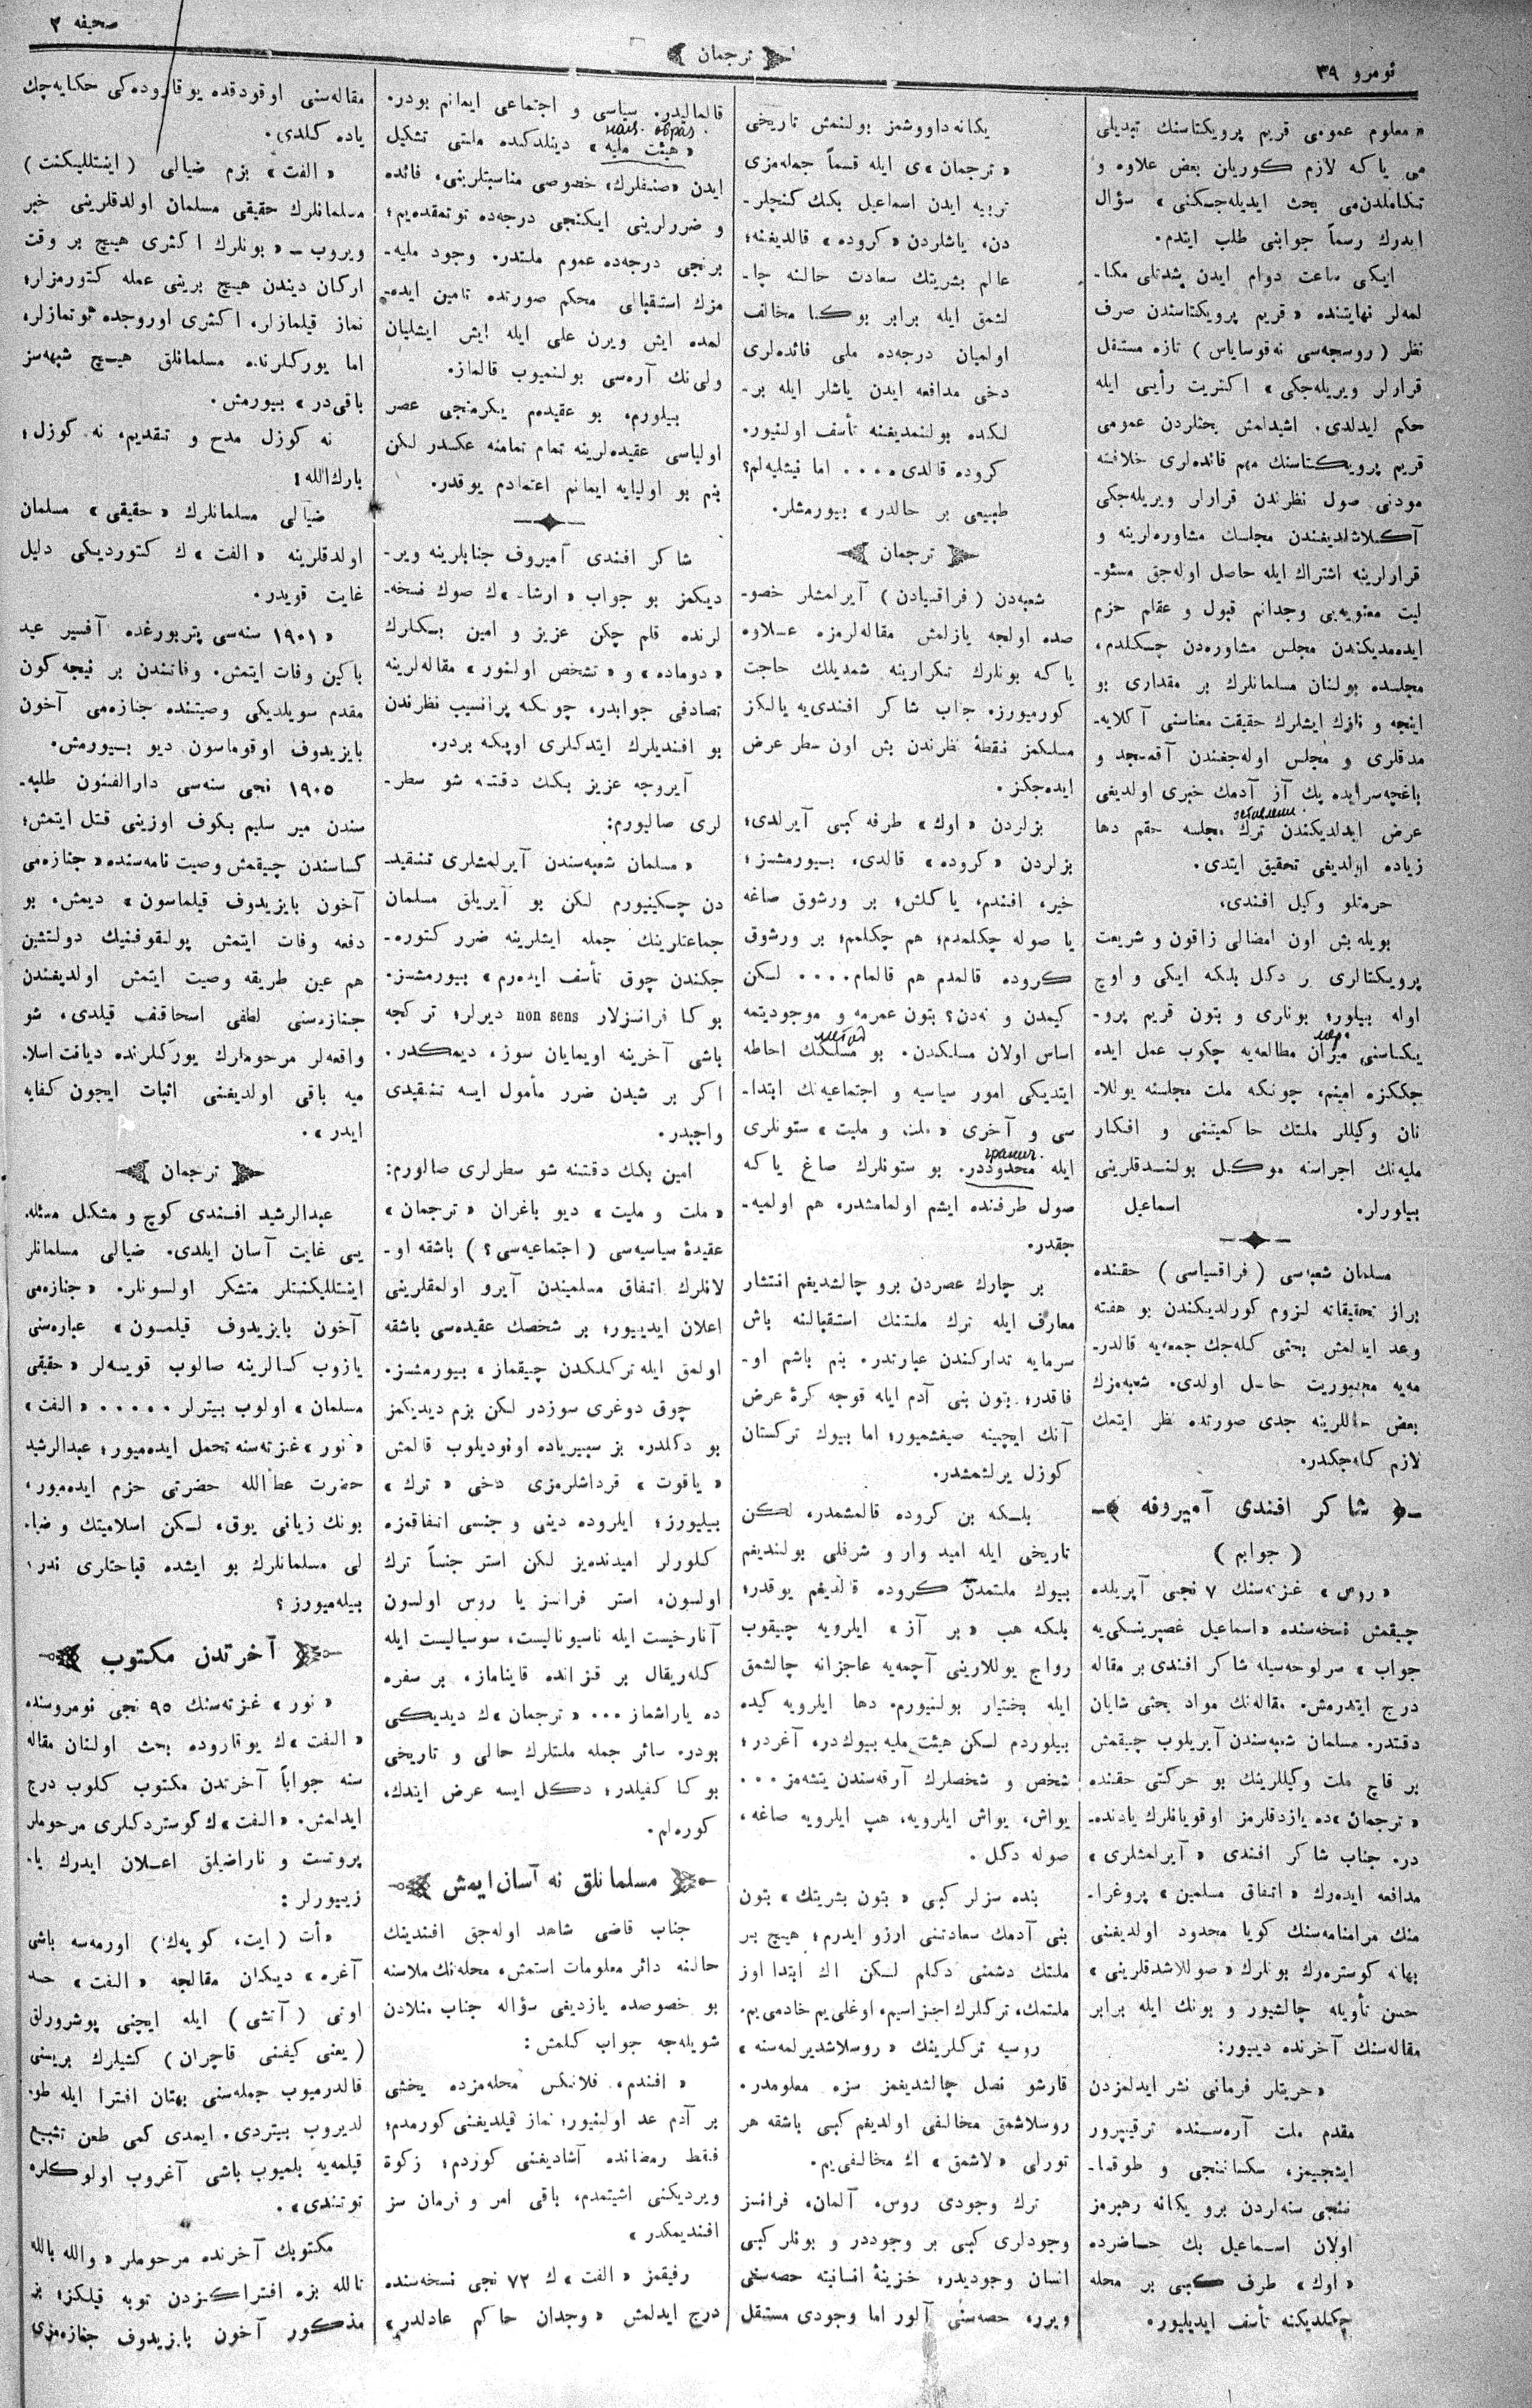 نومرو ٣٩
ترجمان
صحيفه ٢
« معلوم عمومى قريم پرويكتاسنك تبديلى
مى ياكه لازم كوريلن بعض علاوه و
تكاملدن‌مى بحث ايديله‌جكنى » سؤال
ايدرك رسماً جوابنى طلب ايتدم.
ايكى ساعت دوام ايدن شدتلى مكا-
لمه‌لر نهايتنده « قريم پرويكتاسندن صرف
نظر ( روسجه‌سى نه‌قوساياس ) تازه مستقل
قرارلر ويريله‌جكى » اكثريت رأيى ايله
حكم ايدلدى. اشيدلمش بحثلردن عمومى
قريم پرويكتاسنك مهم فائده‌لرى خلافنه
مودنى صول نظرندن قرارلر ويريله‌جكى
آكلاشلديغندن مجلسك مشاوره‌لرينه و
قرارلرينه اشتراك ايله حاصل اوله‌جق مسئو-
ليت معنويه‌يى وجدانم قبول و عقلم حزم
ايده‌مديكندن مجلس مشاوره‌دن چكلدم،
مجلسده بولنان مسلمانلرك بر مقدارى بو
اينجه و نازك ايشلرك حقيقت معناسنى آكلايه-
مدقلرى و مجلس اوله‌جغندن آقمسجد و
باغچه‌سرايده پك آز آدمك خبرى اولديغى
عرض ايدلديكندن ترك مجلسه حقم دها
زياده اولديغى تحقيق ايتدى.
حرمتلو وكيل افندى،
بويله بش اون امضالى زاقون و شريعت
پرويكتالرى بر دكل بلكه ايكى و اوچ
اوله بيلور؛ بونلرى و بتون قريم پرو-
يكتاسنى ميزان مطالعه‌يه چكوب عمل ايده
جككزه امينم، چونكه ملت مجلسنه يوللا-
نان وكيللر ملتك حاكميتنى و افكار
مليه‌نك اجراسنه موكل بولندقلرينى
بيلورلر. اسماعيل
مسلمان شعبه‌سى ( فراقسياسى ) حقنده
براز تحقيقاته لزوم كورلديكندن بو هفته
وعد ايدلمش بحثى كله‌جك جمعه‌يه قالدر-
مه‌يه مجبوريت حاصل اولدى. شعبه‌مزك
بعض حاللرينه جدى صورتده نظر ايتمك
لازم كله‌جكدر.
شاكر افندى آميروفه
( جوابم )
« روس » غزته‌سنك ٧ نجى آپريلده
چيقمش نسخه‌سنده « اسماعيل غصپرينسكى‌يه
جواب » سرلوحه‌سيله شاكر افندى بر مقاله
درج ايتدرمش. مقاله‌نك مواد بحثى شايان
دقتدر. مسلمان شعبه‌سندن آيريلوب چيقمش
بر قاچ ملت وكيللرينك بو حركتى حقنده
« ترجمان »ده يازدقلرمز اوقويانلرك يادنده-
در. جناب شاكر افندى « آيرلمشلرى »
مدافعه ايده‌رك « اتفاق مسلمين » پروغرا-
منك مرامنامه‌سنك كويا محدود اولديغنى
بهانه كوستره‌رك بونلرك « صوللاشدقلرينى »
حسن تأويله چالشيور و بونك ايله برابر
مقاله‌سنك آخرنده ديييور:
« حريتلر فرمانى نشر ايدلمزدن
مقدم ملت آره‌سنده ترقيپرور
ايشجيمز، سكساننجى و طوقسا-
ننجى سنه‌لردن برو يكانه رهبرمز
اولان اسماعيل بك حاضرده
« اوك » طرف كبى بر محله
چكلديكنه تأسف ايديليور.
يكانه داووشمز بولنمش تاريخى
« ترجمان »ى ايله قسماً جمله‌مزى
تربيه ايدن اسماعيل بكك كنجلر-
دن، ياشلردن « كروده » قالديغنه؛
عالم بشريتك سعادت حالنه چا-
لشمق ايله برابر بوكا مخالف
اولميان درجه‌ده ملى فائده‌لرى
دخى مدافعه ايدن ياشلر ايله بر-
لكده بولنمديغنه تأسف اولنيور.
كروده قالدى.... اما نيشليه‌لم؟
طبيعى بر حالدر » بيورمشلر.
ترجمان
شعبه‌دن ( فراقسيادن ) آيرلمشلر خصو-
صده اولجه يازلمش مقاله‌لرمزه علاوه
ياكه بونلرك تكرارينه شمديلك حاجت
كورميورز. جناب شاكر افندى‌يه يالكز
مسلكمز نقطۀ نظرندن بش اون سطر عرض
ايده‌جكز.
بزلردن « اوك » طرفه كبى آيرلدى؛
بزلردن « كروده » قالدى، بيورمشسز؛
خير، افندم، ياكلش؛ بر ورشوق صاغه
يا صوله چكلمدم؛ هم چكلمم؛ بر ورشوق
كروده قالمدم هم قالمام.... لكن
كيمدن و نه‌دن؟ بتون عمرمه و موجوديتمه
اساس اولان مسلكدن. بو مسلكك احاطه
ايتديكى امور سياسيه و اجتماعيه‌نك ابتدا-
سى و آخرى « ملت و مليت » ستونلرى
ايله محدوددر. بو ستونلرك صاغ ياكه
صول طرفنده ايشم اولمامشدر، هم اولميه-
جقدر.
بر چارك عصردن برو چالشديغم انتشار
معارف ايله ترك ملتنك استقبالنه باش
سرمايه تداركندن عبارتدر. بنم باشم او-
فاقدر؛ بتون بنى آدم ايله قوجه كرۀ عرض
آنك ايچينه صيغشميور؛ اما بيوك تركستان
كوزل يرلشمشدر.
بلكه بن كروده قالمشمدر، لكن
تاريخى ايله اميد وار و شرفلى بولنديغم
بيوك ملتمدن كروده قالديغم يوقدر؛
بلكه هب « بر آز » ايلرويه چيقوب
رواج يوللارينى آچمه‌يه عاجزانه چالشمق
ايله بختيار بولنيورم. دها ايلرويه كيده
بيلوردم لكن هيئت مليه بيوك‌در، آغردر؛
شخص و شخصلرك آرقه‌سندن يتشه‌مز...
يواش، يواش ايلرويه، هپ ايلرويه صاغه،
صوله دكل.
بنده سزلر كبى « بتون بشريتك » بتون
بنى آدمك سعادتنى آرزو ايدرم؛ هيچ بر
ملتك دشمنى دكلم لكن اك ابتدا اوز
ملتمك، تركلرك اجزاسيم، اوغلى‌يم خادمى‌يم.
روسيه تركلرينك « روسلاشديرلمه‌سنه »
قارشو نصل چالشديغمز سزه معلومدر.
روسلاشمق مخالفى اولديغم كبى باشقه هر
تورلى « لاشمق » اك مخالفى‌يم.
ترك وجودى روس، آلمان، فرانسز
وجودلرى كبى بر وجوددر و بونلر كبى
انسان وجوديدر؛ خزينۀ انسانيته حصه‌سنى
ويرر، حصه‌سنى آلور اما وجودى مستقل
قالماليدر. سياسى و اجتماعى ايمانم بودر.
« هيئت مليه » دينلدكده ملتى تشكيل
ايدن « صنفلرك » خصوصى مناسبتلرينى، فائده
و ضررلرينى ايكنجى درجه‌ده توتمقده‌يم؛
برنجى درجه‌ده عموم ملتدر. وجود مليه-
مزك استقبالى محكم صورتده تامين ايده-
لمده ايش ويرن على ايله ايش ايشليان
ولى‌نك آره‌سى بولنميوب قالماز.
بيلورم، بو عقيده‌م يكرمنجى عصر
اولياسى عقيده‌لرينه تمام تمامنه عكسدر لكن
بنم بو اوليايه ايمانم اعتمادم يوقدر.
شاكر افندى آميروف جنابلرينه وير-
ديكمز بو جواب « ارشاد »ك صوك نسخه-
لرنده قلم چكن عزيز و امين بكلرك
« دوماده » و « تشخص اولنور » مقاله‌لرينه
تصادفى جوابدر، چونكه پرانسيب نظرندن
بو افنديلرك ايتدكلرى اوپكه بردر.
آيروجه عزيز بكك دقتنه شو سطر-
لرى صاليورم:
« مسلمان شعبه‌سندن آيرلمشلرى تنقيد-
دن چكينيورم لكن بو آيريلق مسلمان
جماعتلرينك جمله ايشلرينه ضرر كتوره-
جكندن چوق تأسف ايده‌رم » بيورمشسز.
بوكا فرانسزلار non sens ديرلر؛ تركجه
باشى آخرينه اويمايان سوز، ديمكدر.
اكر بر شيدن ضرر مأمول ايسه تنقيدى
واجبدر.
امين بكك دقتنه شو سطرلرى صالورم:
« ملت و مليت » ديو باغران « ترجمان »
عقيدۀ سياسيه‌سى ( اجتماعيه‌سى؟ ) باشقه او-
لانلرك اتفاق مسلميندن آيرو اولمقلرينى
اعلان ايديور؛ بر شخصك عقيده‌سى باشقه
اولمق ايله تركلكدن چيقماز » بيورمشسز.
چوق دوغرى سوزدر لكن بزم ديديكمز
بو دكلدر. بز سيبيرياده اونوديلوب قالمش
« ياقوت » قرداشلرمزى دخى « ترك »
بيليورز؛ ايلروده دينى و جنسى اتفاقمزه
كلورلر اميدنده‌يز لكن استر جنساً ترك
اولسون، استر فرانسز يا روس اولسون
آنارخيست ايله ناسيوناليست، سوسياليست ايله
كله‌ريقال بر قزانده قايناماز، بر سفره
ده ياراشماز... « ترجمان »ك ديديكى
بودر. سائر جمله ملتلرك حالى و تاريخى
بوكا كفيلدر؛ دكل ايسه عرض ايتدك،
كوره‌لم.
مسلمانلق نه آسان ايمش
جناب قاضى شاهد اوله‌جق افندينك
حالنه دائر معلومات استمش، محله‌نك ملاسنه
بو خصوصده يازديغى سؤاله جناب ملادن
شويله‌جه جواب كلمش:
« افندم، فلانكس محله‌مزده يخشى
بر آدم عد اولنيور؛ نماز قيلديغنى كورمدم؛
فقط رمضانده آشاديغنى كوردم؛ زكوة
ويرديكنى اشيتمدم، باقى امر و فرمان سز
افنديمكدر »
رفيقمز « الفت »ك ٧٢ نجى نسخه‌سنده
درج ايدلمش « وجدان حاكم عادلدر »
مقاله‌سنى اوقودقده يوقاروده‌كى حكايه‌جك
ياده كلدى.
« الفت » بزم ضيالى ( اينتلليكنت )
مسلمانلرك حقيقى مسلمان اولدقلرينى خبر
ويروب — « بونلرك اكثرى هيچ بر وقت
اركان ديندن هيچ برينى عمله كتورمزلر؛
نماز قيلمازلر، اكثرى اوروجده توتمازلر،
اما يوركلرنده مسلمانلق هيچ شبهه‌سز
باقى‌در » بيورمش.
نه كوزل مدح و تنقديم، نه كوزل؛
بارك‌الله!
ضيالى مسلمانلرك « حقيقى » مسلمان
اولدقلرينه « الفت »ك كتورديكى دليل
غايت قويدر.
« ١٩٠١ سنه‌سى پتربورغده آفسير عيد
باكين وفات ايتمش. وفاتندن بر نيجه كون
مقدم سويلديكى وصيتنده جنازه‌مى آخون
بايزيدوف اوقوماسون ديو بيورمش.
١٩٠٥ نجى سنه‌سى دارالفنون طلبه-
سندن مير سليم بكوف اوزينى قتل ايتمش؛
كساسندن چيقمش وصيت نامه‌سنده « جنازه‌مى
آخون بايزيدوف قيلماسون » ديمش. بو
دفعه وفات ايتمش پولقوفنيك دولتشين
هم عين طريقه وصيت ايتمش اولديغندن
جنازه‌سنى لطفى اسحاقف قيلدى. شو
واقعه‌لر مرحوملرك يوركلرنده ديانت اسلا-
ميه باقى اولديغنى اثبات ايچون كفايه
ايدر ».
ترجمان
عبدالرشيد افندى كوچ و مشكل مسئله-
يى غايت آسان ايلدى. ضيالى مسلمانلر
اينتلليكنتلر متشكر اولسونلر. « جنازه‌مى
آخون بايزيدوف قيلمسون » عباره‌سنى
يازوب كسالرينه صالوب قويسه‌لر « حقيقى
مسلمان » اولوب بيترلر..... « الفت »
« نور » غزته‌سنه تحمل ايده‌ميور؛ عبدالرشيد
حضرت عطاالله حضرتى حزم ايده‌ميور،
بونك زيانى يوق، لكن اسلاميتك و ضيا-
لى مسلمانلرك بو ايشده قباحتلرى ندر؛
بيله‌ميورز؟
آخرتدن مكتوب
« نور » غزته‌سنك ٩٥ نجى نومروسنده
« الفت »ك يوقاروده بحث اولنان مقاله
سنه جواباً آخرتدن مكتوب كلوب درج
ايدلمش. « الفت »ك كوستردكلرى مرحوملر
پروتست و ناراضيلق اعلان ايدرك يا-
زييورلر:
« أت ( ايت، كوپه‌ك ) اورمه‌سه باشى
آغره » ديكان مقالجه « الفت » حسد
اوتى ( آتشى ) ايله ايچنى پوشرورلق
( يعنى كيفنى قاچران ) كشيلرك بريسنى
قالدرميوب جمله‌سنى بهتان افترا ايله طو-
لديروب بيتردى. ايمدى كمى طعن تشييع
قيلمه‌يه بلميوب باشى آغروب اولوكلره
توتندى ».
مكتوبك آخرنده مرحوملر « والله بالله
تالله بزه افتراكزدن توبه قيلكز؛ بز
مذكور آخون بايزيدوف جنازه‌مزى